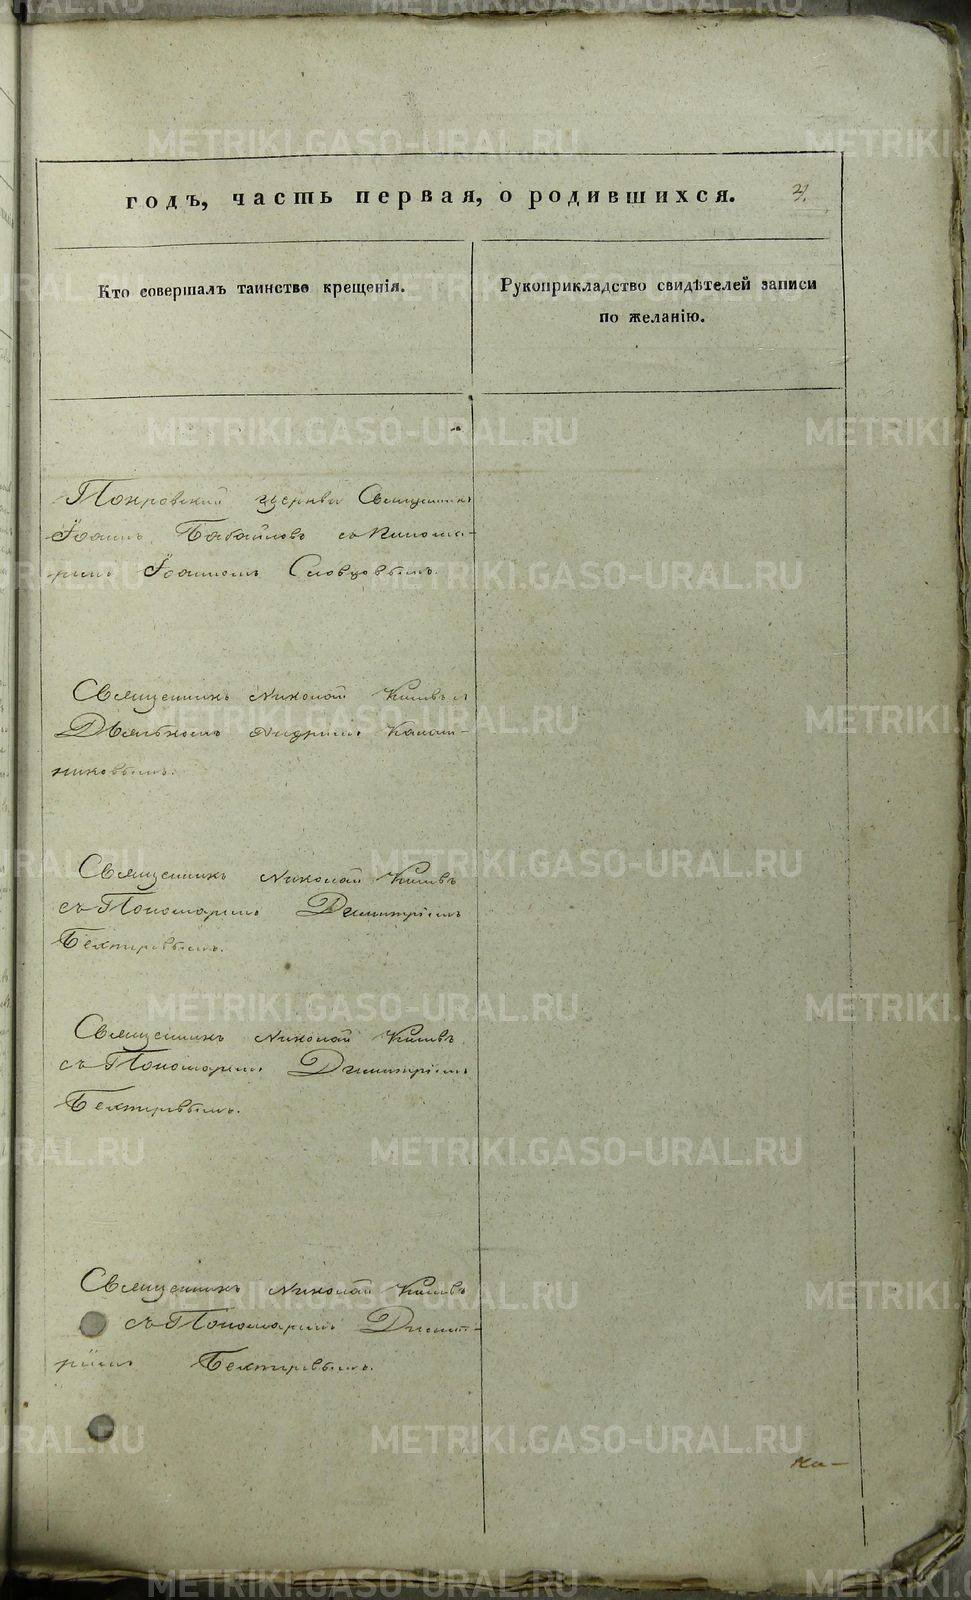 METRIKI.GASO-URAL.RU
годъ, часть первая, о родившихся.
Кто совершалъ таинство крещенія.
Рукоприкладство свидѣтелей записи
по желанію.
Покровской церкви Священникъ
Іоаннъ Бабайловъ съ Понома-
ремъ Іоанномъ Словцовымъ.
Священникъ Николай
Дьячкомъ Андреемъ
никовымъ.
Священникъ Николай
съ Пономаремъ Димитріемъ
Бехтеревымъ.
Священникъ Николай
съ Пономаремъ Димитріемъ
Бехтеревымъ.
Священникъ Николай
съ Пономаремъ Димит-
ріемъ Бехтеревымъ.